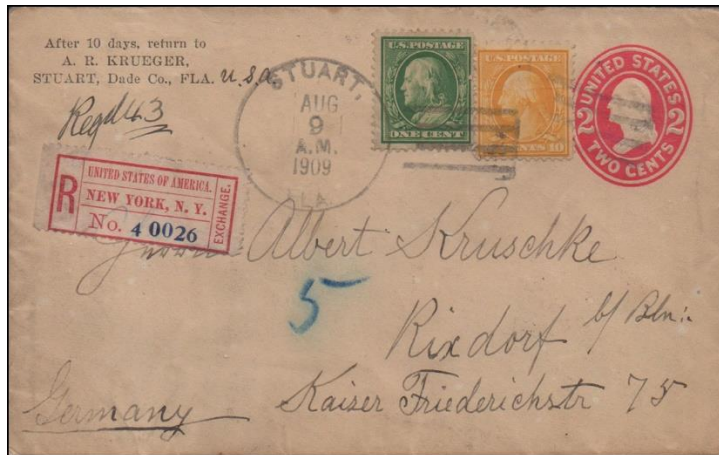 After 10 days, return to
A. R. KRUEGER,
STUART, Dade Co., FLA. U.S.A.
Reg'd 43
STUART,
AUG
9
A.M.
1909
FLA.
U.S. POSTAGE
ONE CENT
U.S. POSTAGE
CENTS 10
UNITED STATES
2 2
TWO CENTS
R
UNITED STATES OF AMERICA.
NEW YORK, N. Y.
No. 40026
EXCHANGE.
Herrn Albert Kruschke
5
Rixdorf b/ Bln:
Kaiser Friederichstr 75
Germany